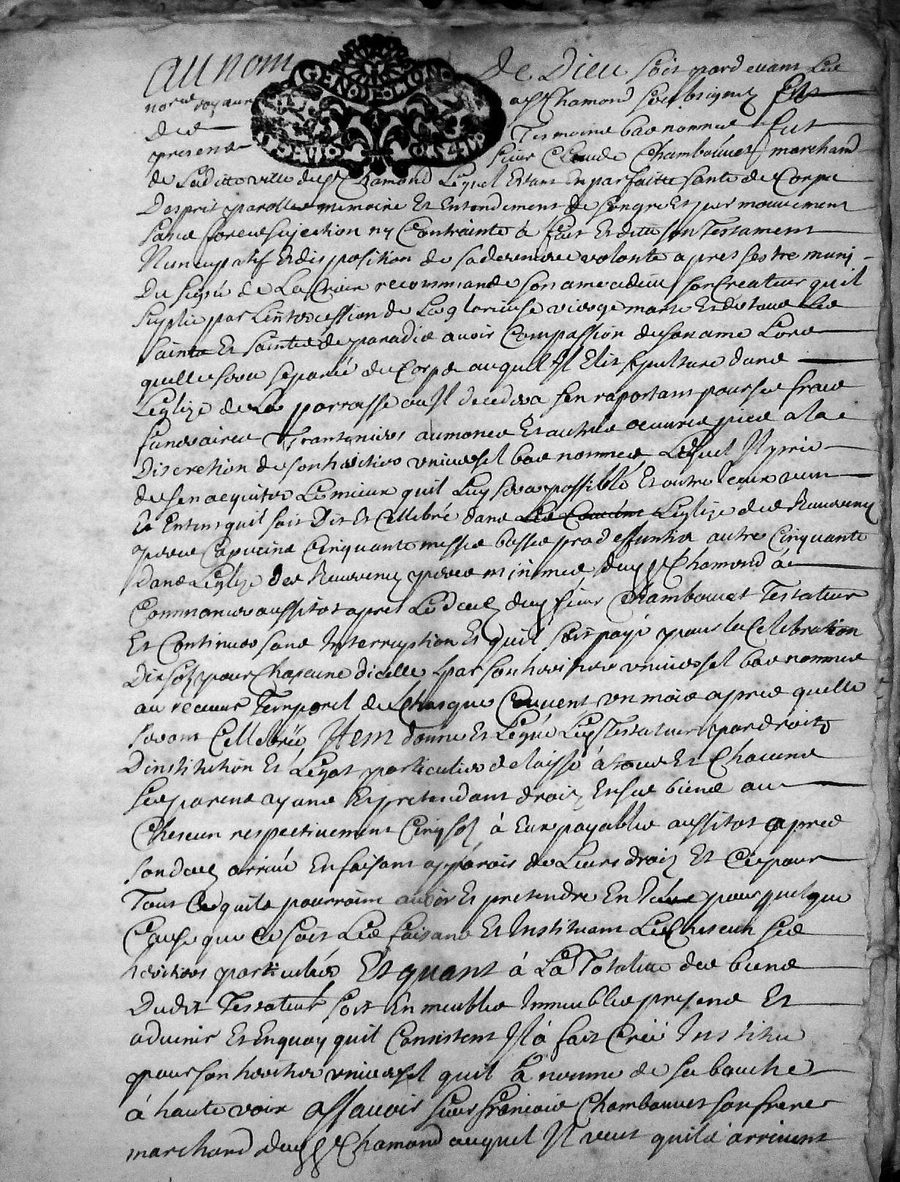 Au nom de Dieu soit pardevant les
nores royaux a St Chamond soubsignez Et
des tesmoins bas nommes fut
GEN. DE LION
present sieur Claude Chambouvet marchand
de laditte ville de St Chamond Lequel Estant En parfaitte santé de Corps
Desprit parolles memoire Et Entendement de son gré Et pur mouvement
sans force sujection ny Contrainte à fait Et ditte son Testament
Nuncupatif Et disposition de sa derniere volonté apres sestre muni
Du signe de La Croix recommande son ame a dieu son Createur quil
suplie par Lintercession de La glorieuse vierge marie Et de tous Les
saints Et saintes de paradis avoir Compassion de son ame Lors
quelle sera separée du Corps auquel Il Elit sepulture dans
Leglize de La parroisse ou Il decedera sen raportant pour ses frais
funeraires aumones Et autres oeuvres pies a la
Discretion de son heritier universel bas nommé Lequel Il prie
de sen acquiter Le mieux quil luy sera possible Et outre Ceux veut
Et Entend quil soit Dit Et Cellebré dans Leglize des Reverends
peres Capucins Cinquante messes basses pro defunctis autres Cinquante
dans Leglize des Reverends peres minimes dud St Chamond à
Commancer aussitot apres Le deces dud sieur Chambouvet Testateur
Et Continuer sans Interruption Et quil soit payé pour la Celebration
Dix sols pour Chacune dicelles par son heritier universel bas nommé
au receveur Temporel de Chaque Couvent un mois apres quelles
seront Cellebrées Item donne Et Legue Led Testateur par droit
Dinstitution Et Legat particulier delaisse à tous Et Chacuns
ses parents ayans Et pretendant droit En ses biens a un
Chescun respectivement Cinq sols à Eux payables aussitot apres
son deces arrivé En faisant apparoir de Leurs droits Et Ce pour
Tout Ce quils pourroient avoir Et pretendre En pour quelque
Cause que Ce soit Les faisans Et Instituant Les Chescun ses
heritiers particuliers Et quant à La Totalité des biens
Dudit Testateur soit En meubles Immeubles presens Et
advenir Et En quoy quil Consistent Il à fait Créé Institué
pour son heritier universel quil à nommé de sa bouche
à haute voix assavoir sieur François Chambouvet son frere
marchand dud St Chamond auquel Il veut quils arrivent